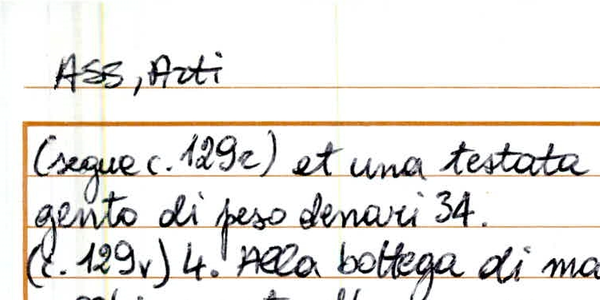 ASS, Arti
(segue c. 129r) et una testata
gento di peso denari 34.
(c. 129v) 4. Alla bottega di ma